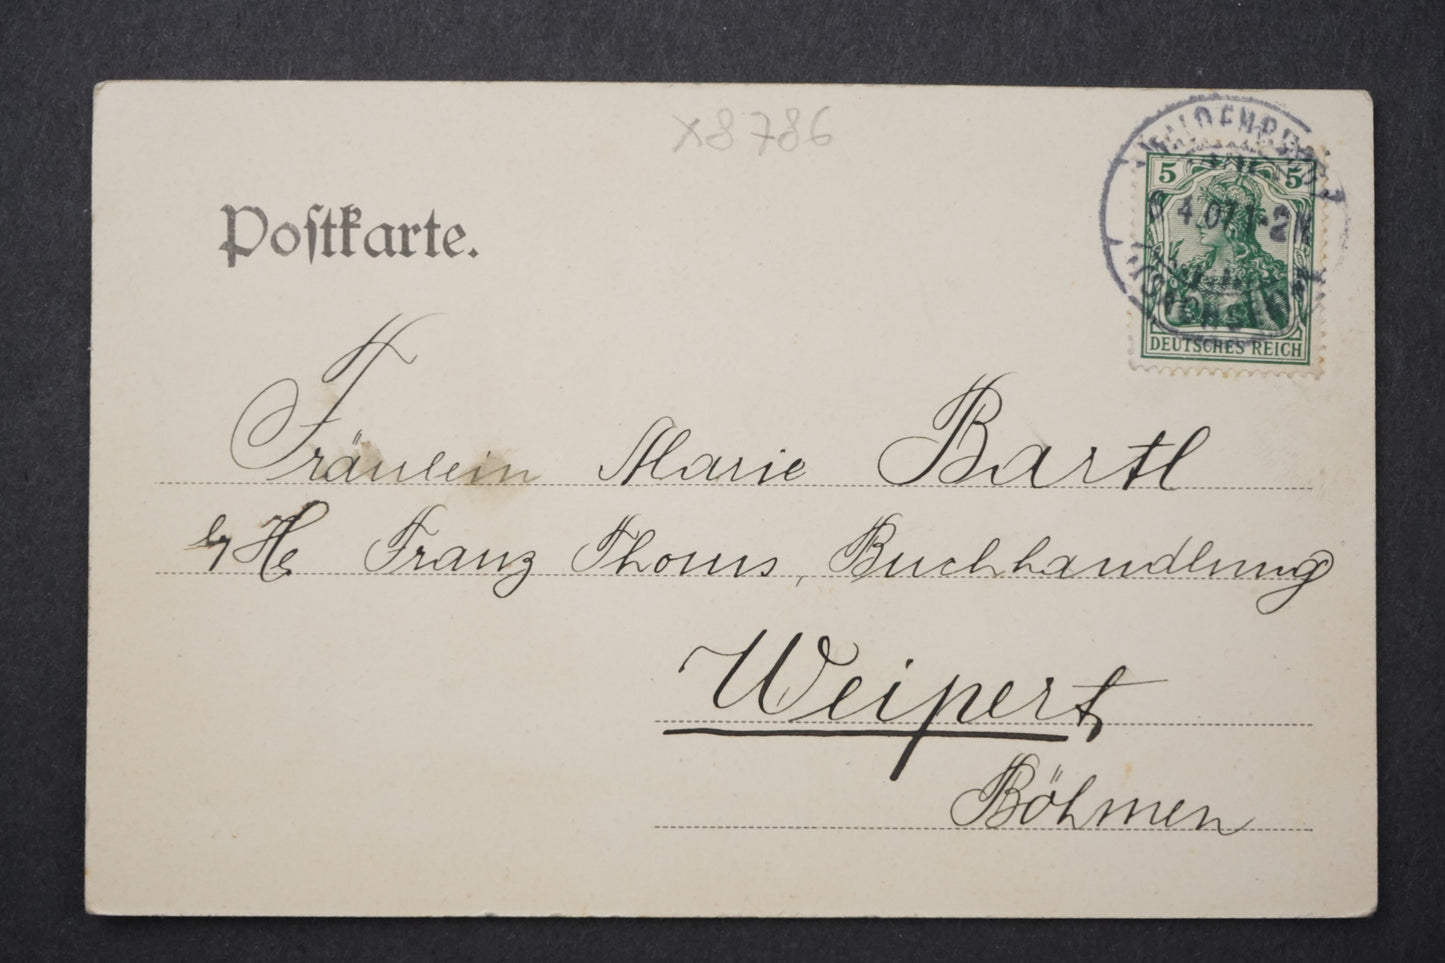 x8786
Postkarte.
5 5
4.07.1-2N
DEUTSCHES REICH
Fräulein Marie Bartl
Franz Thoms, Buchhandlung
Weipert
Böhmen